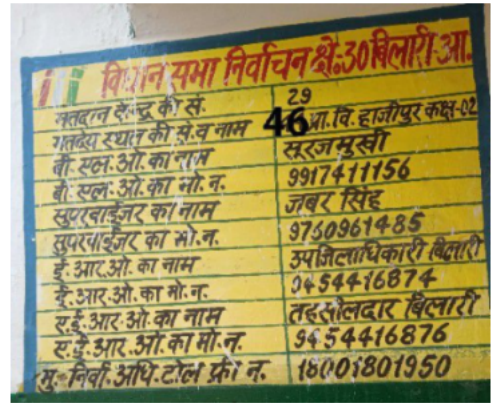 विधान सभा निर्वाचन क्षे.30 बिलारी आ.
मतदान केन्द्र की सं. 29
मतदेय स्थल की सं. व नाम 46 प्रा. वि. हाजीपुर कक्ष-02
बी. एल. ओ. का नाम सूरजमुखी
बी. एल. ओ. का मो. न. 9917411156
सुपरवाईजर का नाम जबर सिंह
सुपरवाईजर का मो. न. 9760961485
ई. आर. ओ. का नाम उपजिलाधिकारी बिलारी
ई. आर. ओ. का मो. न. 9454416874
ए. ई. आर. ओ. का नाम तहसीलदार बिलारी
ए. ई. आर. ओ. का मो. न. 9454416876
मु. निर्वा. अधि. टोल फ्री न. 18001801950